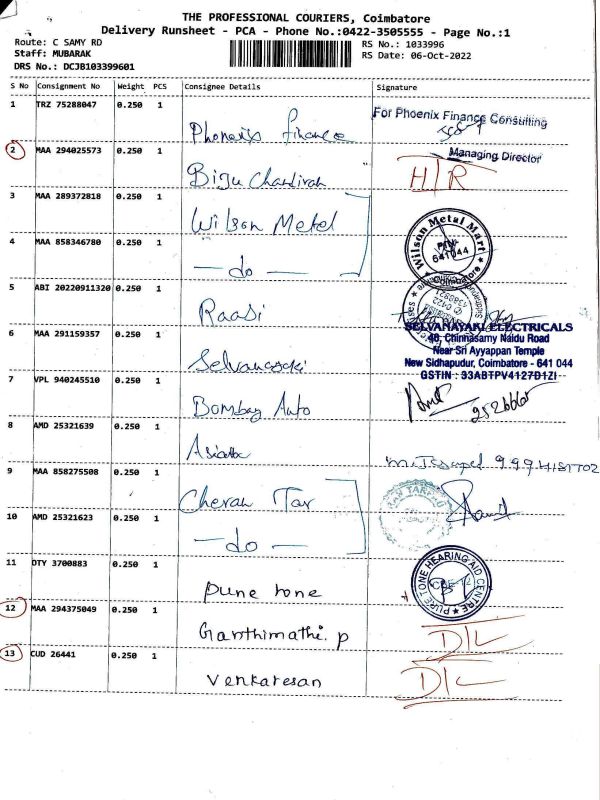 THE PROFESSIONAL COURIERS, Coimbatore
Delivery Runsheet - PCA - Phone No.:0422-3505555 - Page No.:1
Route: C SAMY RD
Staff: MUBARAK
DRS No.: DCJB103399601
RS No.: 1033996
RS Date: 06-Oct-2022
S No Consignment No Weight PCS Consignee Details Signature
1 TRZ 75288047 0.250 1 For Phoenix Finance Consulting
Managing Director
2 MAA 294025573 0.250 1 Biju H/R
3 MAA 289372818 0.250 1 Wilson Metel Wilson Metal Mart 641044 Coimbatore
4 MAA 858346780 0.250 1 - do -
5 ABI 20220911320 0.250 1 Raasi
SELVANAYAKI ELECTRICALS
48, Chinnasamy Naidu Road
Near Sri Ayyappan Temple
New Sidhapudur, Coimbatore - 641 044
GSTIN : 33ABTPV4127D1ZI
6 MAA 291159357 0.250 1
7 VPL 940245510 0.250 1 Bombay Auto
8 AMD 25321639 0.250 1
9 MAA 858275508 0.250 1 Cheran Tar
10 AMD 25321623 0.250 1 - do -
11 DTY 3700883 0.250 1 Pune tone PURE TONE HEARING AID CENTRE
12 MAA 294375049 0.250 1 Ganthimathi. p D/L
13 CUD 26441 0.250 1 Venkatesan D/L